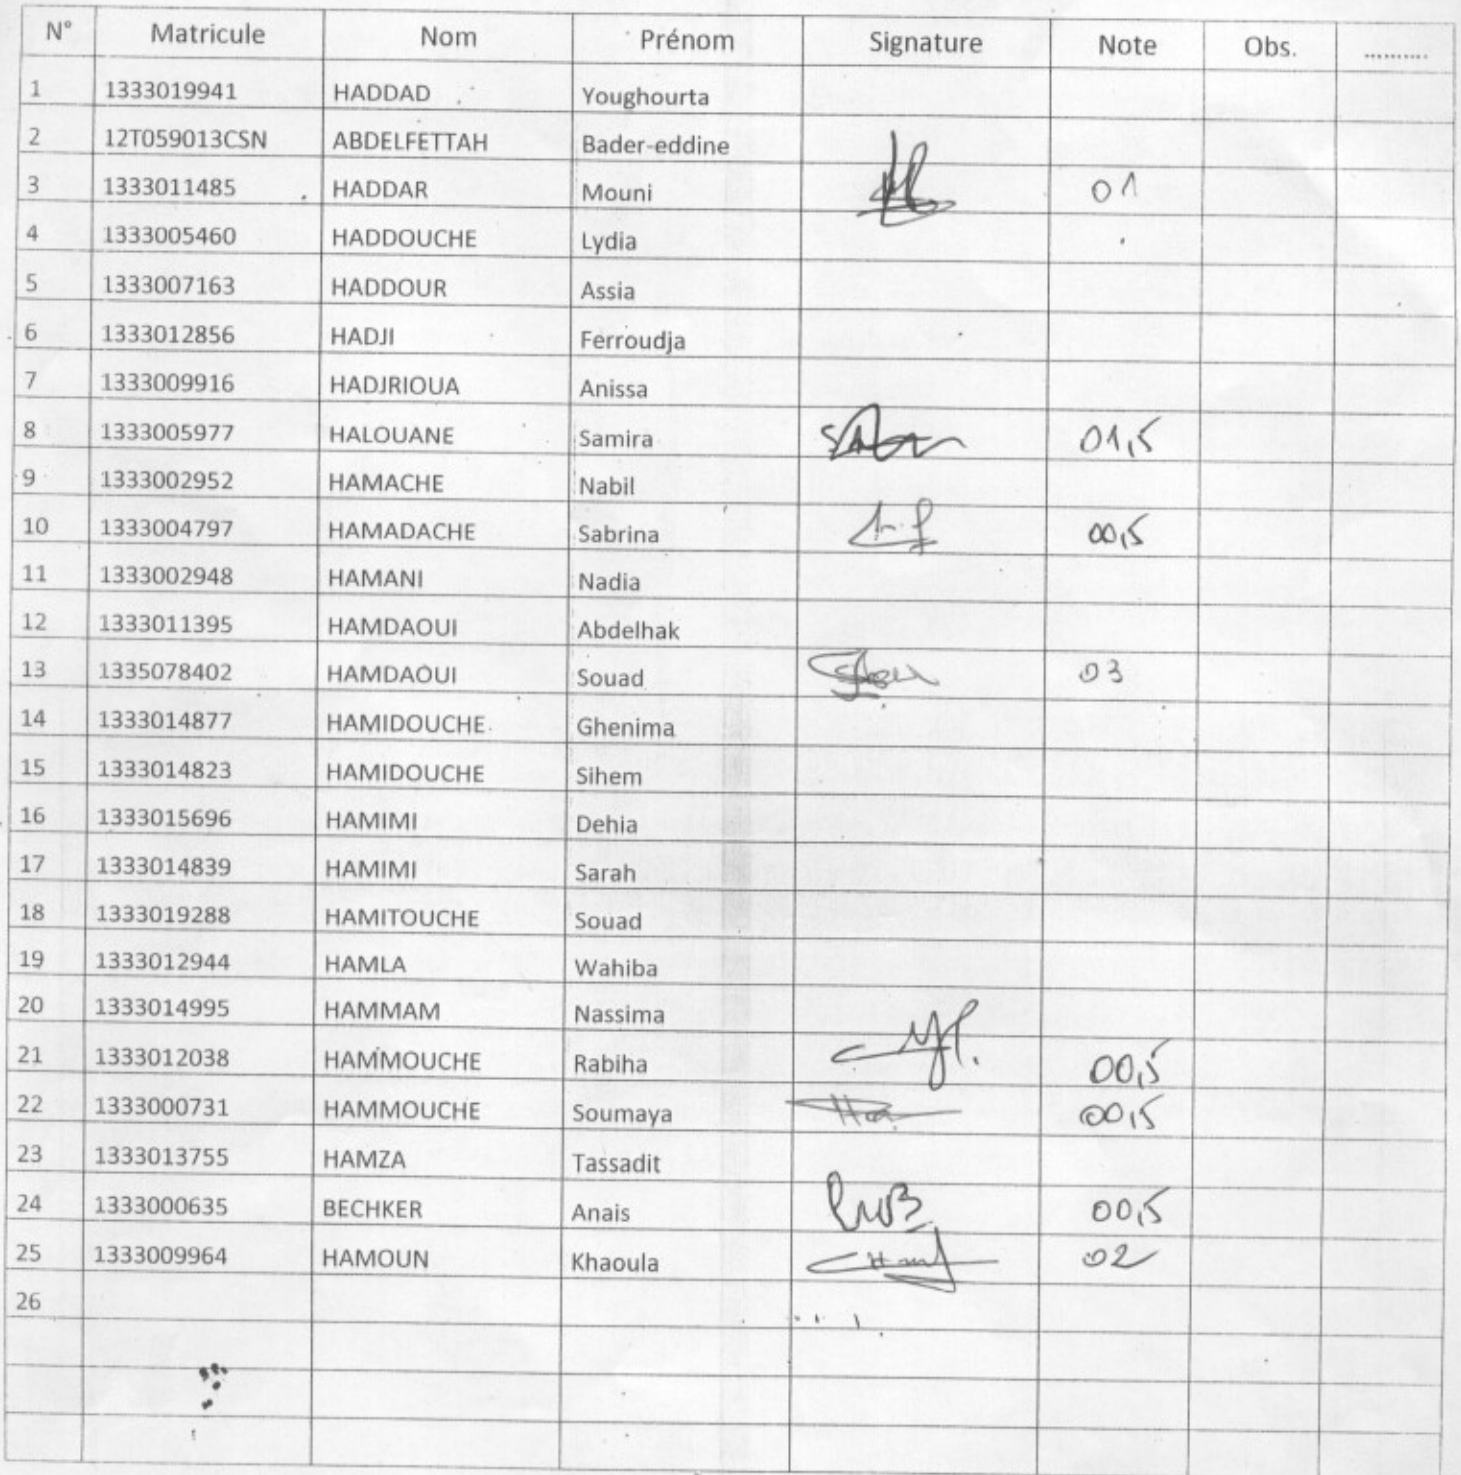 N° Matricule Nom Prénom Signature Note Obs. ..........
1 1333019941 HADDAD Youghourta
2 12T059013CSN ABDELFETTAH Bader-eddine
3 1333011485 HADDAR Mouni 01
4 1333005460 HADDOUCHE Lydia
5 1333007163 HADDOUR Assia
6 1333012856 HADJI Ferroudja
7 1333009916 HADJRIOUA Anissa
8 1333005977 HALOUANE Samira 01,5
9 1333002952 HAMACHE Nabil
10 1333004797 HAMADACHE Sabrina 00,5
11 1333002948 HAMANI Nadia
12 1333011395 HAMDAOUI Abdelhak
13 1335078402 HAMDAOUI Souad 03
14 1333014877 HAMIDOUCHE Ghenima
15 1333014823 HAMIDOUCHE Sihem
16 1333015696 HAMIMI Dehia
17 1333014839 HAMIMI Sarah
18 1333019288 HAMITOUCHE Souad
19 1333012944 HAMLA Wahiba
20 1333014995 HAMMAM Nassima
21 1333012038 HAMMOUCHE Rabiha 00,5
22 1333000731 HAMMOUCHE Soumaya 00,5
23 1333013755 HAMZA Tassadit
24 1333000635 BECHKER Anais 00,5
25 1333009964 HAMOUN Khaoula 02
26